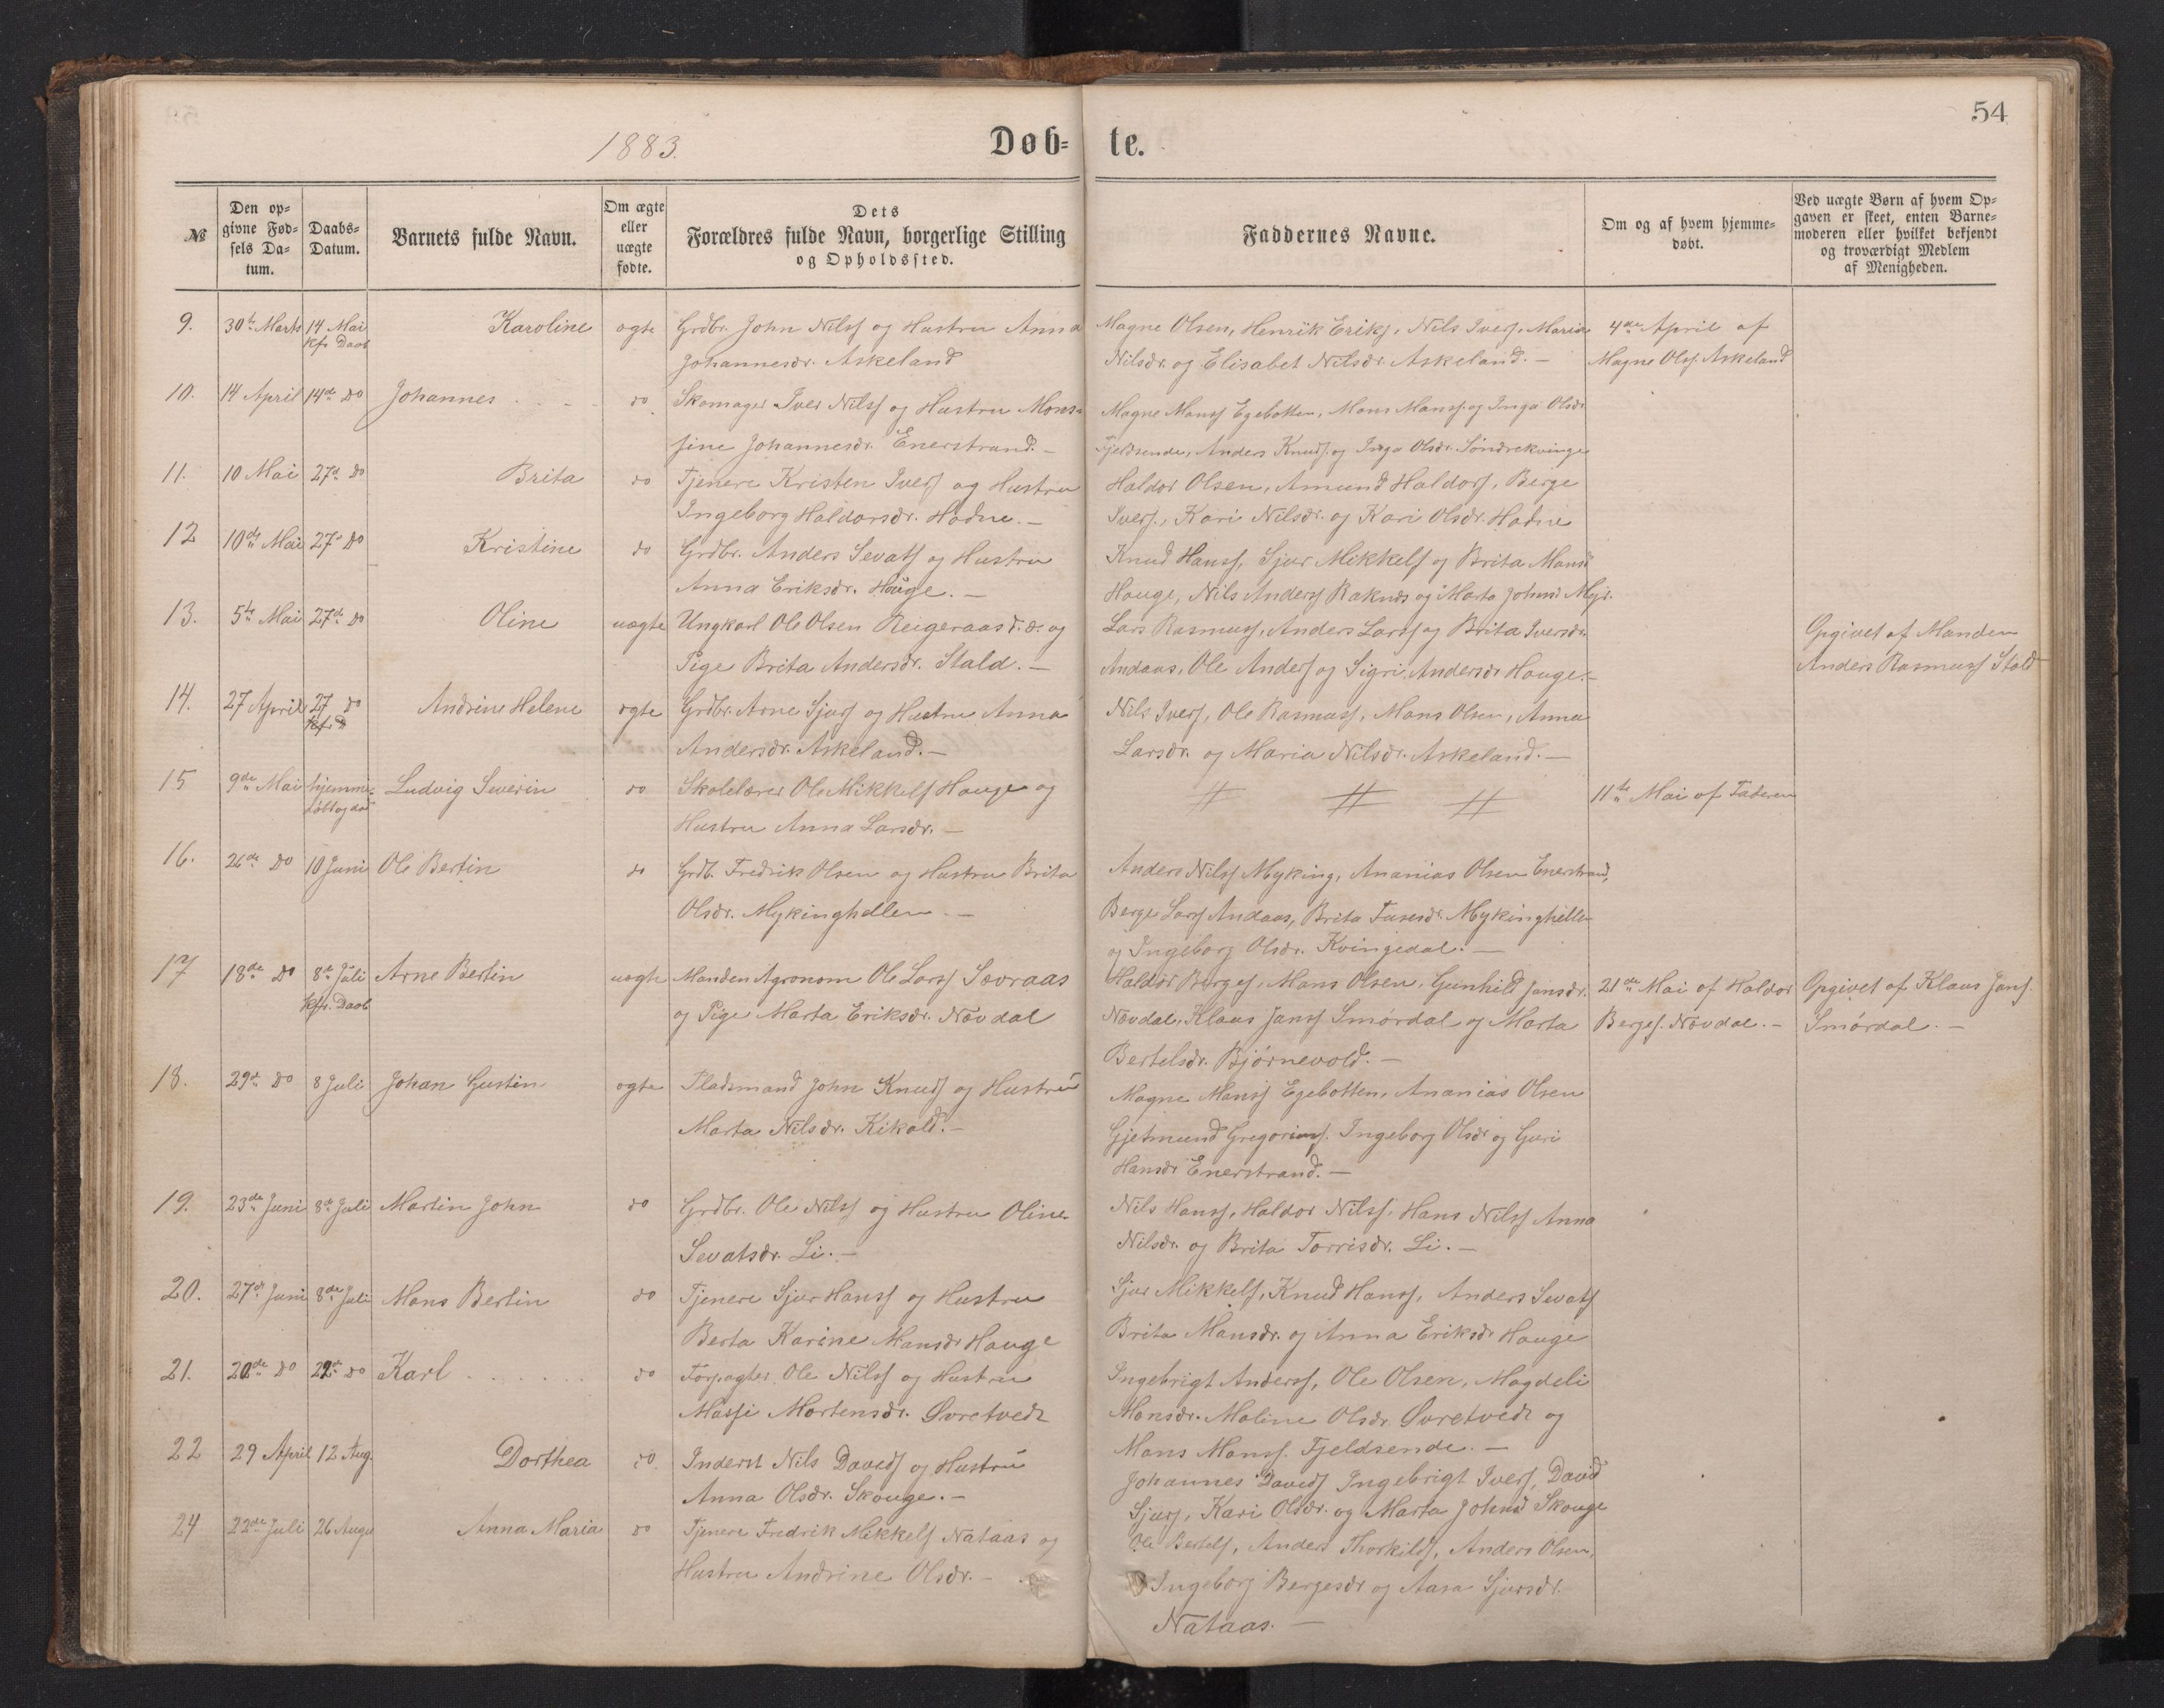 54
1883. Døb= te.
№ Den op=givne Fød=sels Da=tum. Daabs-Datum. Barnets fulde Navn. Om ægte eller uægte fødte. Dets Forældres fulde Navn, borgerlige Stilling og Opholdssted. Faddernes Navne. Om og af hvem hjemme=døbt. Ved uægte Børn af hvem Op=gaven er skeet, enten Barne=moderen eller hvilket bekjendt og troværdigt Medlem af Menigheden.
9. 30te Marts 14 Mai Karoline ægte Grdbr. John Nilss og Hustru Anna Magne Olsen, Henrik Eriks, Nils Ivers, Maria 4de April af
kfr Daab Johannesdr. Askeland Nilsdr. og Elisabet Nilsdr. Askeland. — Magne Olss. Askeland
10. 14 April 14de Do Johannes do Skomager Iver Nilss og Hustru Mons= Magne Monss Egebotten, Mons Monss. og Inga Olsdr.
sine Johannesdr. Enerstrand. — Fjeldsende, Anders Knuds. og Inga Olsdr. Söndrekvinge
11. 10 Mai 27d Do Brita do Tjenere Kristen Ivers og Hustru Haldor Olsen, Amund Haldors, Berge
Ingeborg Haldorsdr. Hodne. — Ivers., Kari Nilsdr. og Kari Olsdr. Hodne
12 10de Mai 27d Do Kristine do Grdbr. Anders Sevats og Hustru Knud Hanss, Sjur Mikkels og Brita Mons
Anna Eriksdr. Hauge. — Hauge, Nils Anderss Raknes og Marta Johnsd Myr.
13. 5te Mai 27de Do Oline uægte Ungkarl Ole Olsen Reigeraas d. æ. og Lars Rasmuss, Anders Larss og Brita Iversdr. Opgivet af Manden
Pige Brita Andersdr. Stald. — Andaas, Ole Anders og Sigri Andersdr Hauge. — Anders Rasmuss Stald
14. 27 April 27 Do Andrine Helene ægte Grdbr. Arne Sjurs og Hustru Anna Nils Ivers, Ole Rasmuss, Mons Olsen, Anna
kfr. D Andersdr. Askeland. — Larsdr. og Maria Nilsdr. Askeland. —
15 9de Mai hjemme= Ludvig Severin do Skolelærer Ole Mikkels Hauge og # # # 11te Mai af Faderen
døbt og død Hustru Anna Larsdr. —
16. 26de Do 10 Juni Ole Bertin do Grdb. Fredrik Olsen og Hustru Brita Anders Nilss Myking, Ananias Olsen Enerstrand,
Olsdr. Mykinghellen. — Berge Larss Andaas, Brita Fusesdr. Mykinghellen
og Ingeborg Olsdr. Kvingedal. —
17 18de Do 8de Juli Arne Bertin uægte Manden Agronom Ole Larss Sævraas Haldor Berges, Mons Olsen, Gunhild Jansdr. 21de Mai af Haldor Opgivet af Klaus Jans.
kfr. Daab og Pige Marta Eriksdr. Növdal Növdal, Klaus Janss Smördal og Marta Berges. Növdal. — Smördal. —
Bertelsdr. Björnevold. —
18. 29de Do 8 Juli Johan Gustin ægte Pladsmand John Knuds og Hustru Magne Monss Egebotten, Ananias Olsen
Marta Nilsdr. Kikald. — Gjetmund Gregoriuss. Ingeborg Olsdr og Guri
Hansdr Enerstrand. —
19. 23de Juni 8de Juli Martin John do Grdbr. Ole Nilss og Hustru Oline Nils Hanss, Haldor Nilss, Hans Nilss Anna
Sevatsdr. Li. — Nilsdr. og Brita Torrisdr. Li. —
20. 27de Juni 8de Juli Mons Bertin do Tjenere Sjur Hanss og Hustru Sjur Mikkels, Knud Hanss, Anders Sevats
Berta Karine Monsdr Hauge Brita Monsdr. og Anna Eriksdr Hauge
21. 20de Do 22de Do Karl do Forpagter Ole Nilss og Hustru Ingebrigt Anderss, Ole Olsen, Magdeli
Massi Mortensdr. Øvretvedt Monsdr. Maline Olsdr Øvretvedt og
Mons Monss. Fjeldsende. —
22 29 April 12 Aug. Dorthea do Inderst Nils Davids og Hustru Johannes Davids Ingebrigt Ivers, David
Anna Olsdr. Skauge. — Sjurs, Kari Olsdr. og Marta Johnsd Skauge
24 22de Juli 26 Aug Anna Maria do Tjenere Fredrik Mikkels Nataas og Ole Bertels, Anders Thorkilds, Anders Olsen,
Hustru Andrine Olsdr. — Ingeborg Bergesdr og Aasa Sjursdr.
Nataas. —